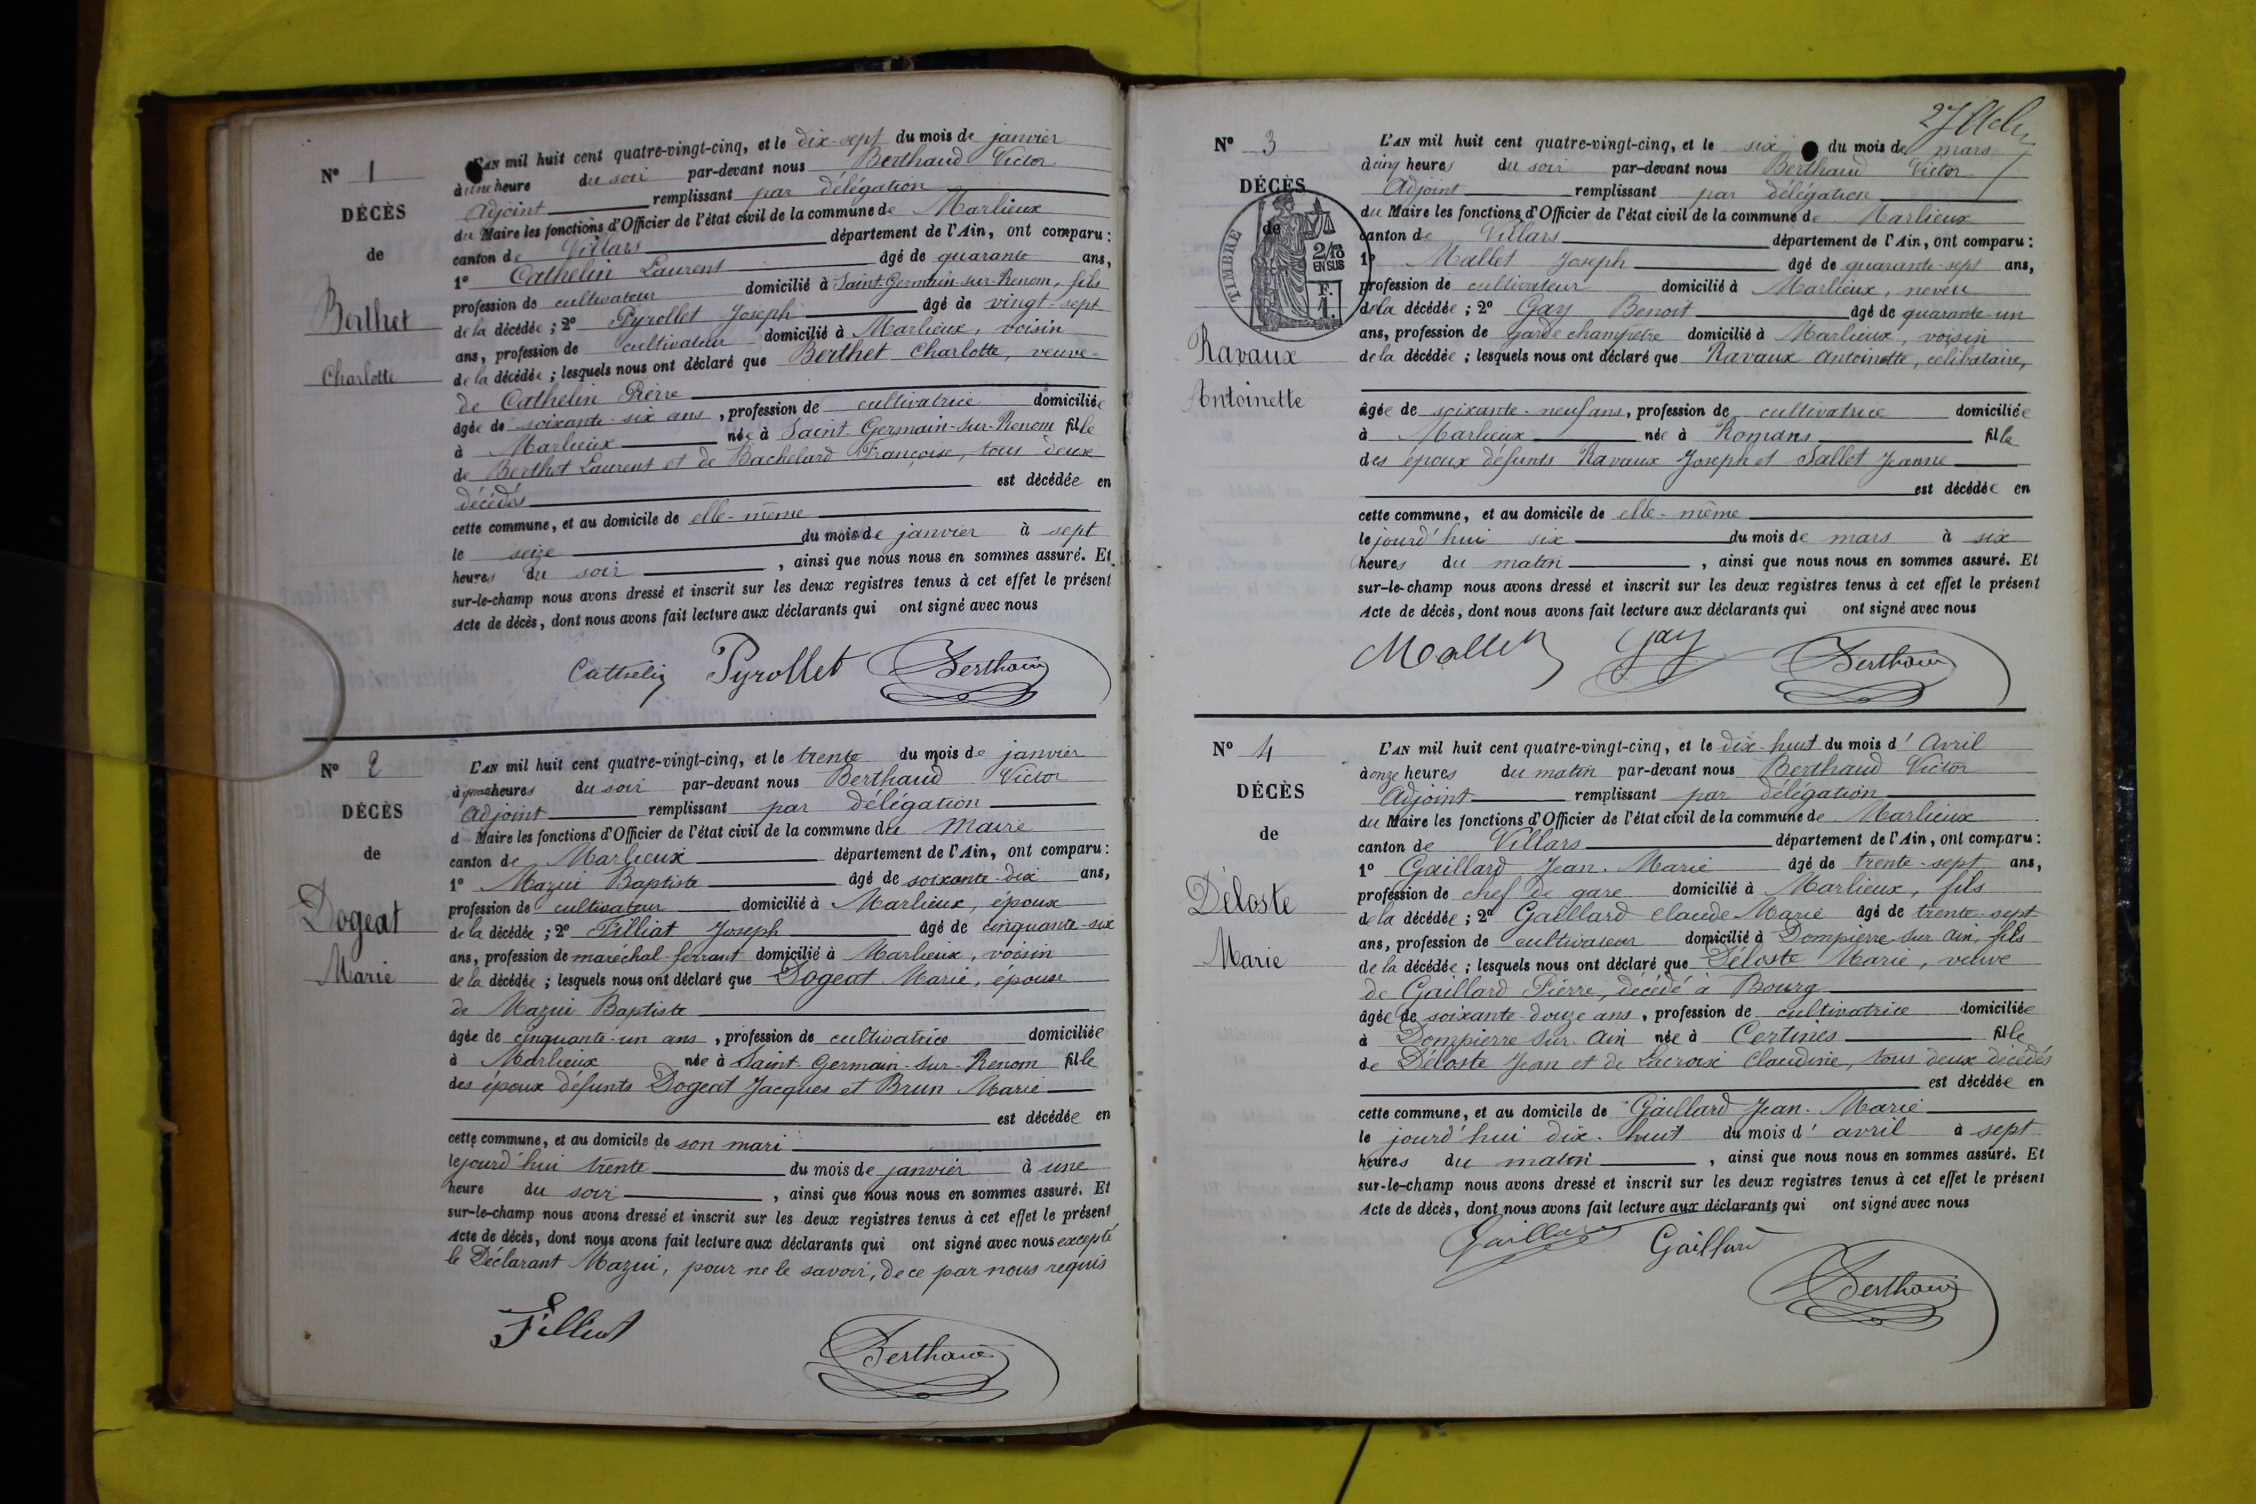 N° 1
DÉCÈS
de
Berthet
Charlotte
L'AN mil huit cent quatre-vingt-cinq, et le dix-sept du mois de janvier
à une heure du soir par-devant nous Berthaud Victor
Adjoint remplissant par délégation
du Maire les fonctions d'Officier de l'état civil de la commune de Marlieux
canton de Villars département de l'Ain, ont comparu :
1° Cathelin Laurent âgé de quarante ans,
profession de cultivateur domicilié à Saint-Germain-sur-Renom, fils
de la décédée ; 2° Pyrollet Joseph âgé de vingt-sept
ans, profession de cultivateur domicilié à Marlieux, voisin
de la décédée ; lesquels nous ont déclaré que Berthet Charlotte, veuve
de Cathelin Pierre
âgée de soixante-six ans, profession de cultivatrice domiciliée
à Marlieux née à Saint-Germain-sur-Renom fille
de Berthet Laurent et de Bachelard Françoise, tous deux
décédés est décédée en
cette commune, et au domicile de elle-même
le seize du mois de janvier à sept
heures du soir, ainsi que nous nous en sommes assuré. Et
sur-le-champ nous avons dressé et inscrit sur les deux registres tenus à cet effet le présent
Acte de décès, dont nous avons fait lecture aux déclarants qui ont signé avec nous
Cathelin Pyrollet Berthaud
N° 2
DÉCÈS
de
Dogeat
Marie
L'AN mil huit cent quatre-vingt-cinq, et le trente du mois de janvier
à heures du soir par-devant nous Berthaud Victor
Adjoint remplissant par délégation
d Maire les fonctions d'Officier de l'état civil de la commune du Maire
canton de Marlieux département de l'Ain, ont comparu :
1° Mazui Baptiste âgé de soixante-dix ans,
profession de cultivateur domicilié à Marlieux, époux
de la décédée ; 2° Filliat Joseph âgé de cinquante-six
ans, profession de maréchal-ferrant domicilié à Marlieux, voisin
de la décédée ; lesquels nous ont déclaré que Dogeat Marie, épouse
de Mazui Baptiste
âgée de cinquante-un ans, profession de cultivatrice domiciliée
à Marlieux née à Saint-Germain-sur-Renom fille
des époux défunts Dogeat Jacques et Brun Marie
est décédée en
cette commune, et au domicile de son mari
le jourd'hui trente du mois de janvier à une
heure du soir, ainsi que nous nous en sommes assuré. Et
sur-le-champ nous avons dressé et inscrit sur les deux registres tenus à cet effet le présent
Acte de décès, dont nous avons fait lecture aux déclarants qui ont signé avec nous excepté
le Déclarant Mazui, pour ne le savoir, de ce par nous requis
Filliat Berthaud
27
N° 3
DÉCÈS
de
TIMBRE
2/10
EN SUS
F.
1.
Ravaux
Antoinette
L'AN mil huit cent quatre-vingt-cinq, et le six du mois de mars
à cinq heures du soir par-devant nous Berthaud Victor
Adjoint remplissant par délégation
du Maire les fonctions d'Officier de l'état civil de la commune de Marlieux
canton de Villars département de l'Ain, ont comparu :
1° Mallet Joseph âgé de quarante-sept ans,
profession de cultivateur domicilié à Marlieux, neveu
de la décédée ; 2° Gay Benoit âgé de quarante-un
ans, profession de garde champêtre domicilié à Marlieux, voisin
de la décédée ; lesquels nous ont déclaré que Ravaux Antoinette, célibataire,
âgée de soixante-neuf ans, profession de cultivatrice domiciliée
à Marlieux née à Romans fille
des époux défunts Ravaux Joseph et Sallet Jeanne
est décédée en
cette commune, et au domicile de elle-même
le jourd'hui six du mois de mars à six
heures du matin, ainsi que nous nous en sommes assuré. Et
sur-le-champ nous avons dressé et inscrit sur les deux registres tenus à cet effet le présent
Acte de décès, dont nous avons fait lecture aux déclarants qui ont signé avec nous
Mallet Gay Berthaud
N° 4
DÉCÈS
de
Déloste
Marie
L'AN mil huit cent quatre-vingt-cinq, et le dix-huit du mois d'Avril
à onze heures du matin par-devant nous Berthaud Victor
Adjoint remplissant par délégation
du Maire les fonctions d'Officier de l'état civil de la commune de Marlieux
canton de Villars département de l'Ain, ont comparu :
1° Gaillard Jean-Marie âgé de trente-sept ans,
profession de chef de gare domicilié à Marlieux, fils
de la décédée ; 2° Gaillard Claude Marie âgé de trente-sept
ans, profession de cultivateur domicilié à Dompierre-sur-Ain, fils
de la décédée ; lesquels nous ont déclaré que Déloste Marie, veuve
de Gaillard Pierre, décédé à Bourg
âgée de soixante-douze ans, profession de cultivatrice domiciliée
à Dompierre-sur-Ain née à Certines fille
de Déloste Jean et de Lacroix Claudine, tous deux décédés
est décédée en
cette commune, et au domicile de Gaillard Jean-Marie
le jourd'hui dix-huit du mois d'avril à sept
heures du matin, ainsi que nous nous en sommes assuré. Et
sur-le-champ nous avons dressé et inscrit sur les deux registres tenus à cet effet le présent
Acte de décès, dont nous avons fait lecture aux déclarants qui ont signé avec nous
Gaillard Gaillard
Berthaud